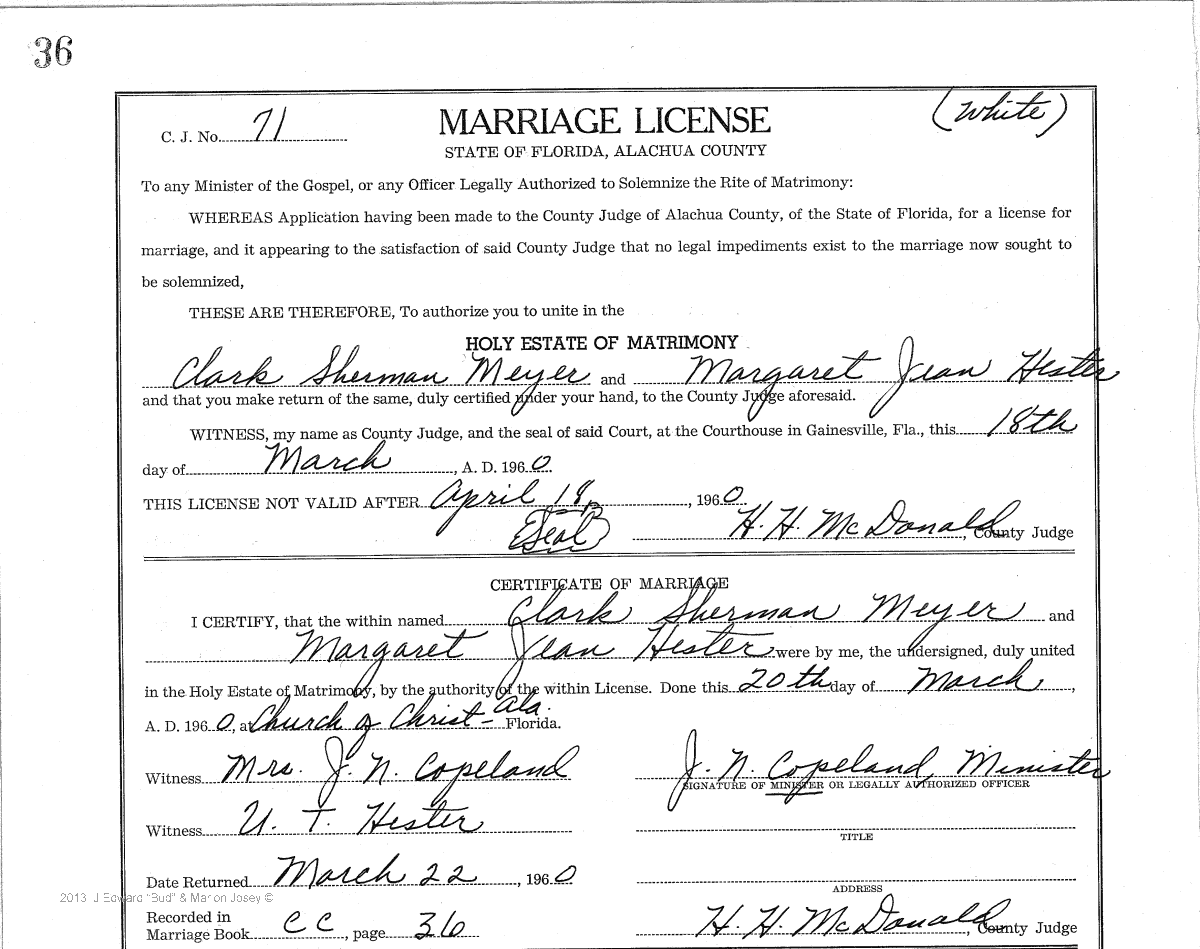 36
C. J. No. 71
MARRIAGE LICENSE
(White)
STATE OF FLORIDA, ALACHUA COUNTY
To any Minister of the Gospel, or any Officer Legally Authorized to Solemnize the Rite of Matrimony:
WHEREAS Application having been made to the County Judge of Alachua County, of the State of Florida, for a license for
marriage, and it appearing to the satisfaction of said County Judge that no legal impediments exist to the marriage now sought to
be solemnized,
THESE ARE THEREFORE, To authorize you to unite in the
HOLY ESTATE OF MATRIMONY
Clark Sherman Meyer and Margaret Jean Hester
and that you make return of the same, duly certified under your hand, to the County Judge aforesaid.
WITNESS, my name as County Judge, and the seal of said Court, at the Courthouse in Gainesville, Fla., this 18th
day of March, A. D. 1960
THIS LICENSE NOT VALID AFTER April 18, 1960
(Seal) H. H. McDonald, County Judge
CERTIFICATE OF MARRIAGE
I CERTIFY, that the within named Clark Sherman Meyer and
Margaret Jean Hester were by me, the undersigned, duly united
in the Holy Estate of Matrimony, by the authority of the within License. Done this 20th day of March,
A. D. 1960, at Church of Christ - Ala. Florida.
Witness Mrs. J. N. Copeland J. N. Copeland, Minister
SIGNATURE OF MINISTER OR LEGALLY AUTHORIZED OFFICER
Witness U. T. Hester
TITLE
Date Returned March 22, 1960
ADDRESS
2013 J Edward "Bud" & Marion Josey ©
Recorded in
Marriage Book CC, page 36 H. H. McDonald, County Judge